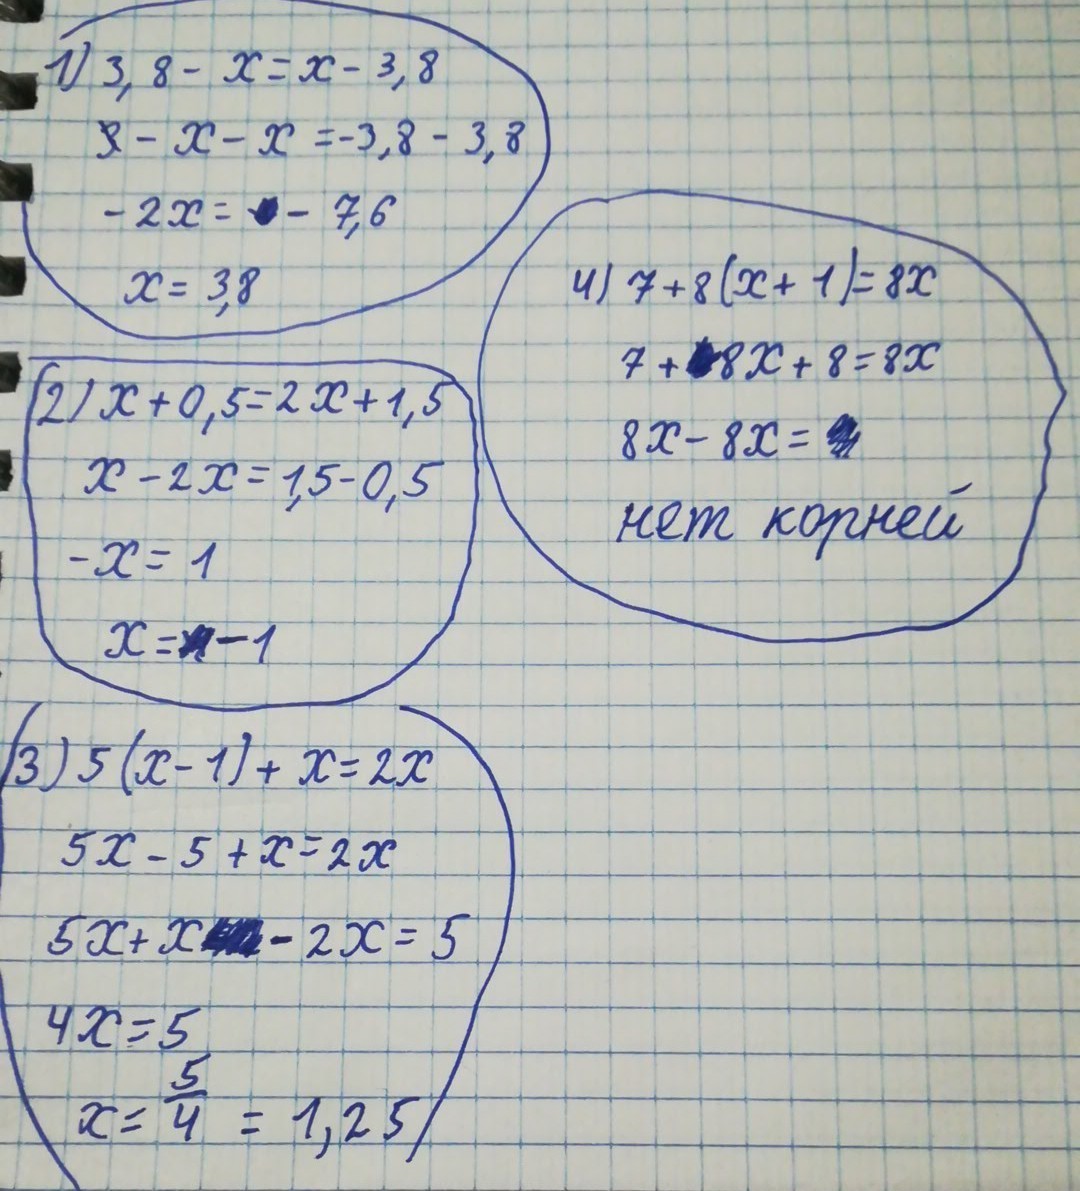 1) 3,8 - x = x - 3,8
- x - x = -3,8 - 3,8
-2x = - 7,6
x = 3,8
2) x + 0,5 = 2x + 1,5
x - 2x = 1,5 - 0,5
-x = 1
x = -1
3) 5(x - 1) + x = 2x
5x - 5 + x = 2x
5x + x - 2x = 5
4x = 5
x = 5/4 = 1,25
4) 7 + 8(x + 1) = 8x
7 + 8x + 8 = 8x
8x - 8x =
нет корней